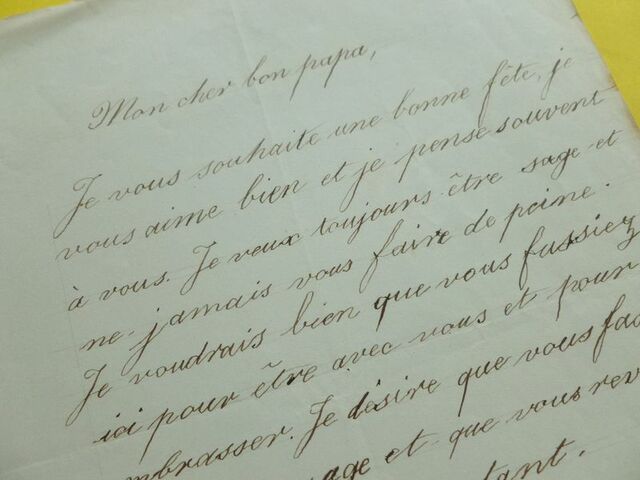 Mon cher bon papa,
Je vous souhaite une bonne fête, je
vous aime bien et je pense souvent
à vous. Je veux toujours être sage et
ne jamais vous faire de peine.
Je voudrais bien que vous fussiez
ici pour être avec vous et pour
mbrasser. Je désire que vous fas
age et que vous rev
tant.